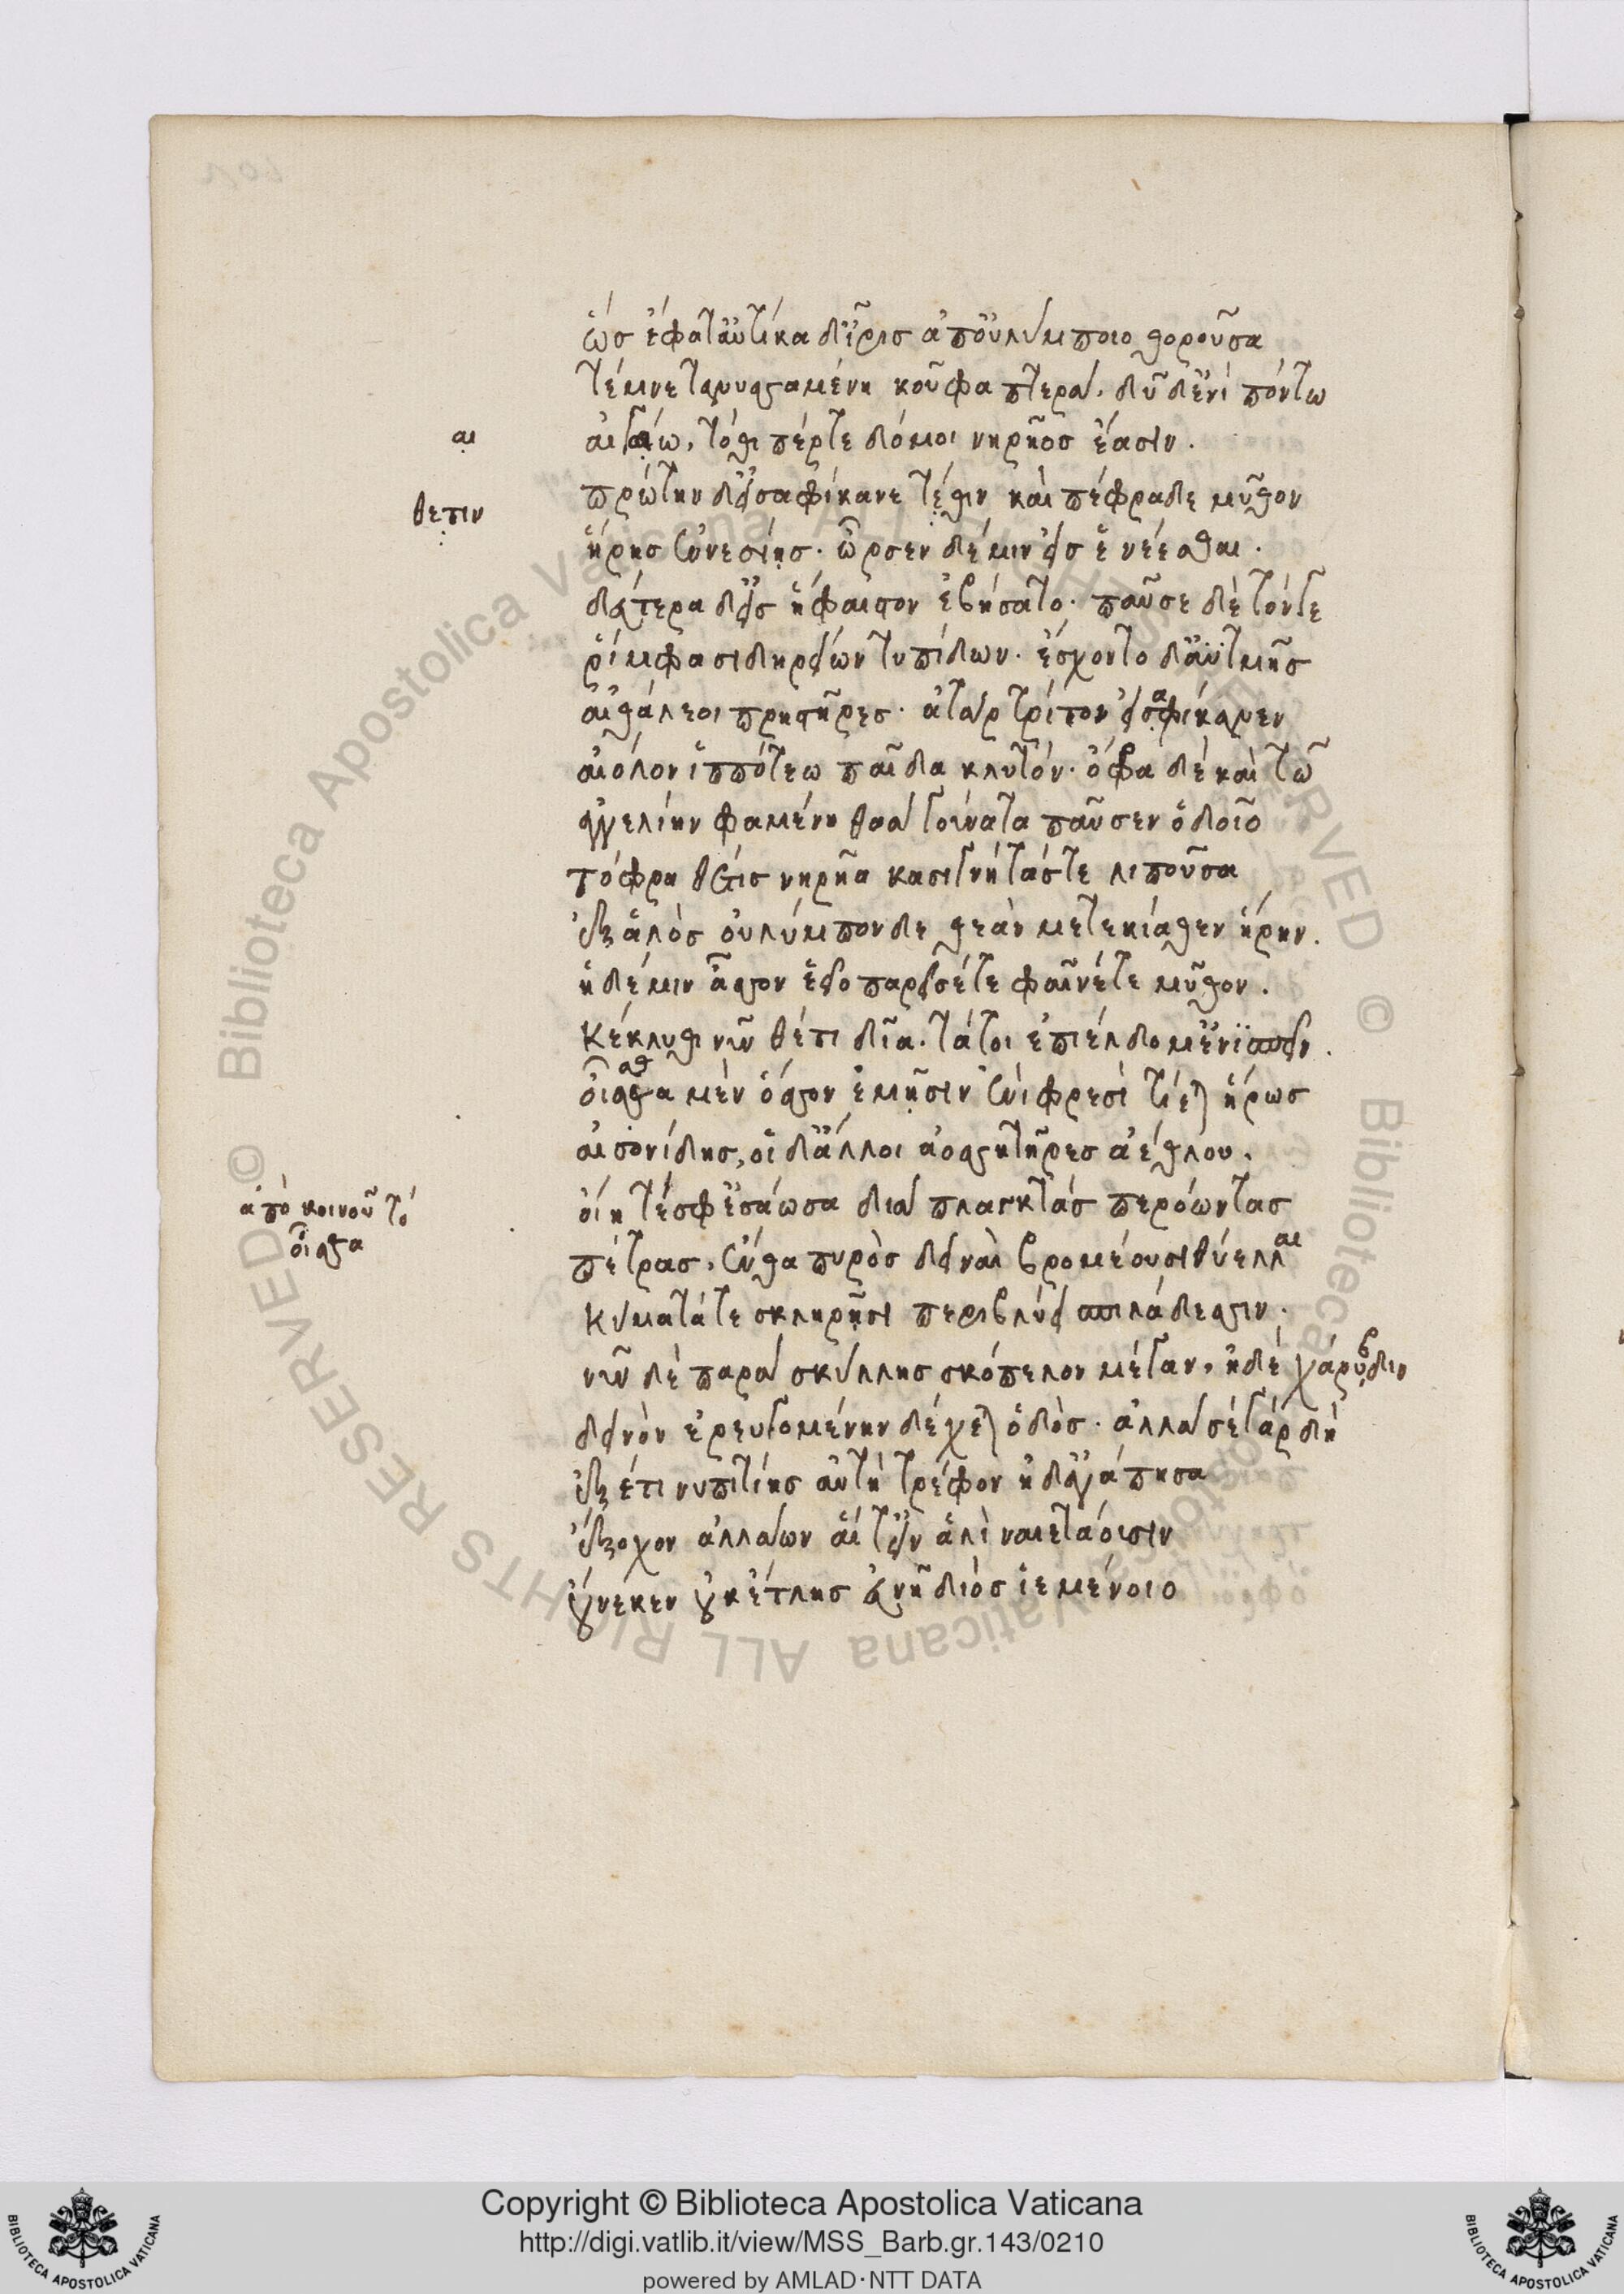 ὣς ἔφατ' αὐτίκα δ' ἶρις ἀπ' οὐλύμποιο θοροῦσα
τέμνε τανυσσαμένη κοῦφα πτερά. δῦ δ' ἐνὶ πόντω
αι
αἰγαίω, τόθι πέρτε δόμοι νηρῆος ἔασιν.
θετιν
πρώτην δ' εἰσαφίκανε τέθιν καὶ πέφραδε μῦθον
ἥρης ἐνεσίης. ὦρσεν δέ μιν εἰς ἓ νέεσθαι.
δεύτερα δ' εἰς ἥφαιστον ἐβήσατο. παῦσε δὲ τόνγε
ῥίμφα σιδηρείων τυπίδων. ἔσχοντο δ' ἀϋτμῆς
αἰθάλεοι πρηστῆρες. ἀτὰρ τρίτον εἰσαφίκανεν
αἰόλον ἱππότεω παῖδα κλυτόν. ὄφρα δὲ καὶ τῶ
ἀγγελίην φαμένη θοὰ γούνατα παῦσεν ὁδοῖο
τόφρα θέτις νηρῆα κασιγνήτάς τε λιποῦσα
ἐξ ἁλὸς οὐλύμπονδε θεὰν μετεκίαθεν ἥρην.
ἡ δέ μιν ἆσσον ἑεῖο παρεῖσέ τε φαῖνέ τε μῦθον.
κέκλυθι νῦν θέτι δῖα. τά τοι ἐπιέλδομ' ἐνίσπειν.
οἶσθα μὲν ὅσσον ἐμῆσιν ἐνὶ φρεσὶ τίεται ἥρως
αἰσονίδης, οἱ δ' ἄλλοι ἀοσσητῆρες ἀέθλου.
ἀπὸ κοινοῦ τό
οἶσθα
οἵη τέ σφ' ἐσάωσα διὰ πλαγκτάς περόωντας
πέτρας, ἔνθα πυρὸς δειναὶ βρομέουσι θύελλαι
κύματά τε σκληρῆσι περιβλύει σπιλάδεσσιν.
νῦν δὲ παρὰ σκύλλης σκόπελον μέγαν, ἠδὲ χάρυβδιν
δεινὸν ἐρευγομένην δέχεται ὁδὸς. ἀλλὰ σέ γάρ δὴ
ἐξ έτι νηπυτίης αὐτὴ τρέφον ἠδ' ἀγάπησα
ἔξοχον ἀλλάων αἵ τ' εἰν ἁλὶ ναιετάουσιν
οὕνεκεν οὐκ ἔτλης εὐνῆ διὸς ἱεμένοιο
© Biblioteca Apostolica Vaticana ALL RIGHTS RESERVED
© Biblioteca Apostolica Vaticana ALL RIGHTS RESERVED
Copyright © Biblioteca Apostolica Vaticana
http://digi.vatlib.it/view/MSS_Barb.gr.143/0210
powered by AMLAD·NTT DATA
BIBLIOTECA APOSTOLICA VATICANA
BIBLIOTECA APOSTOLICA VATICANA